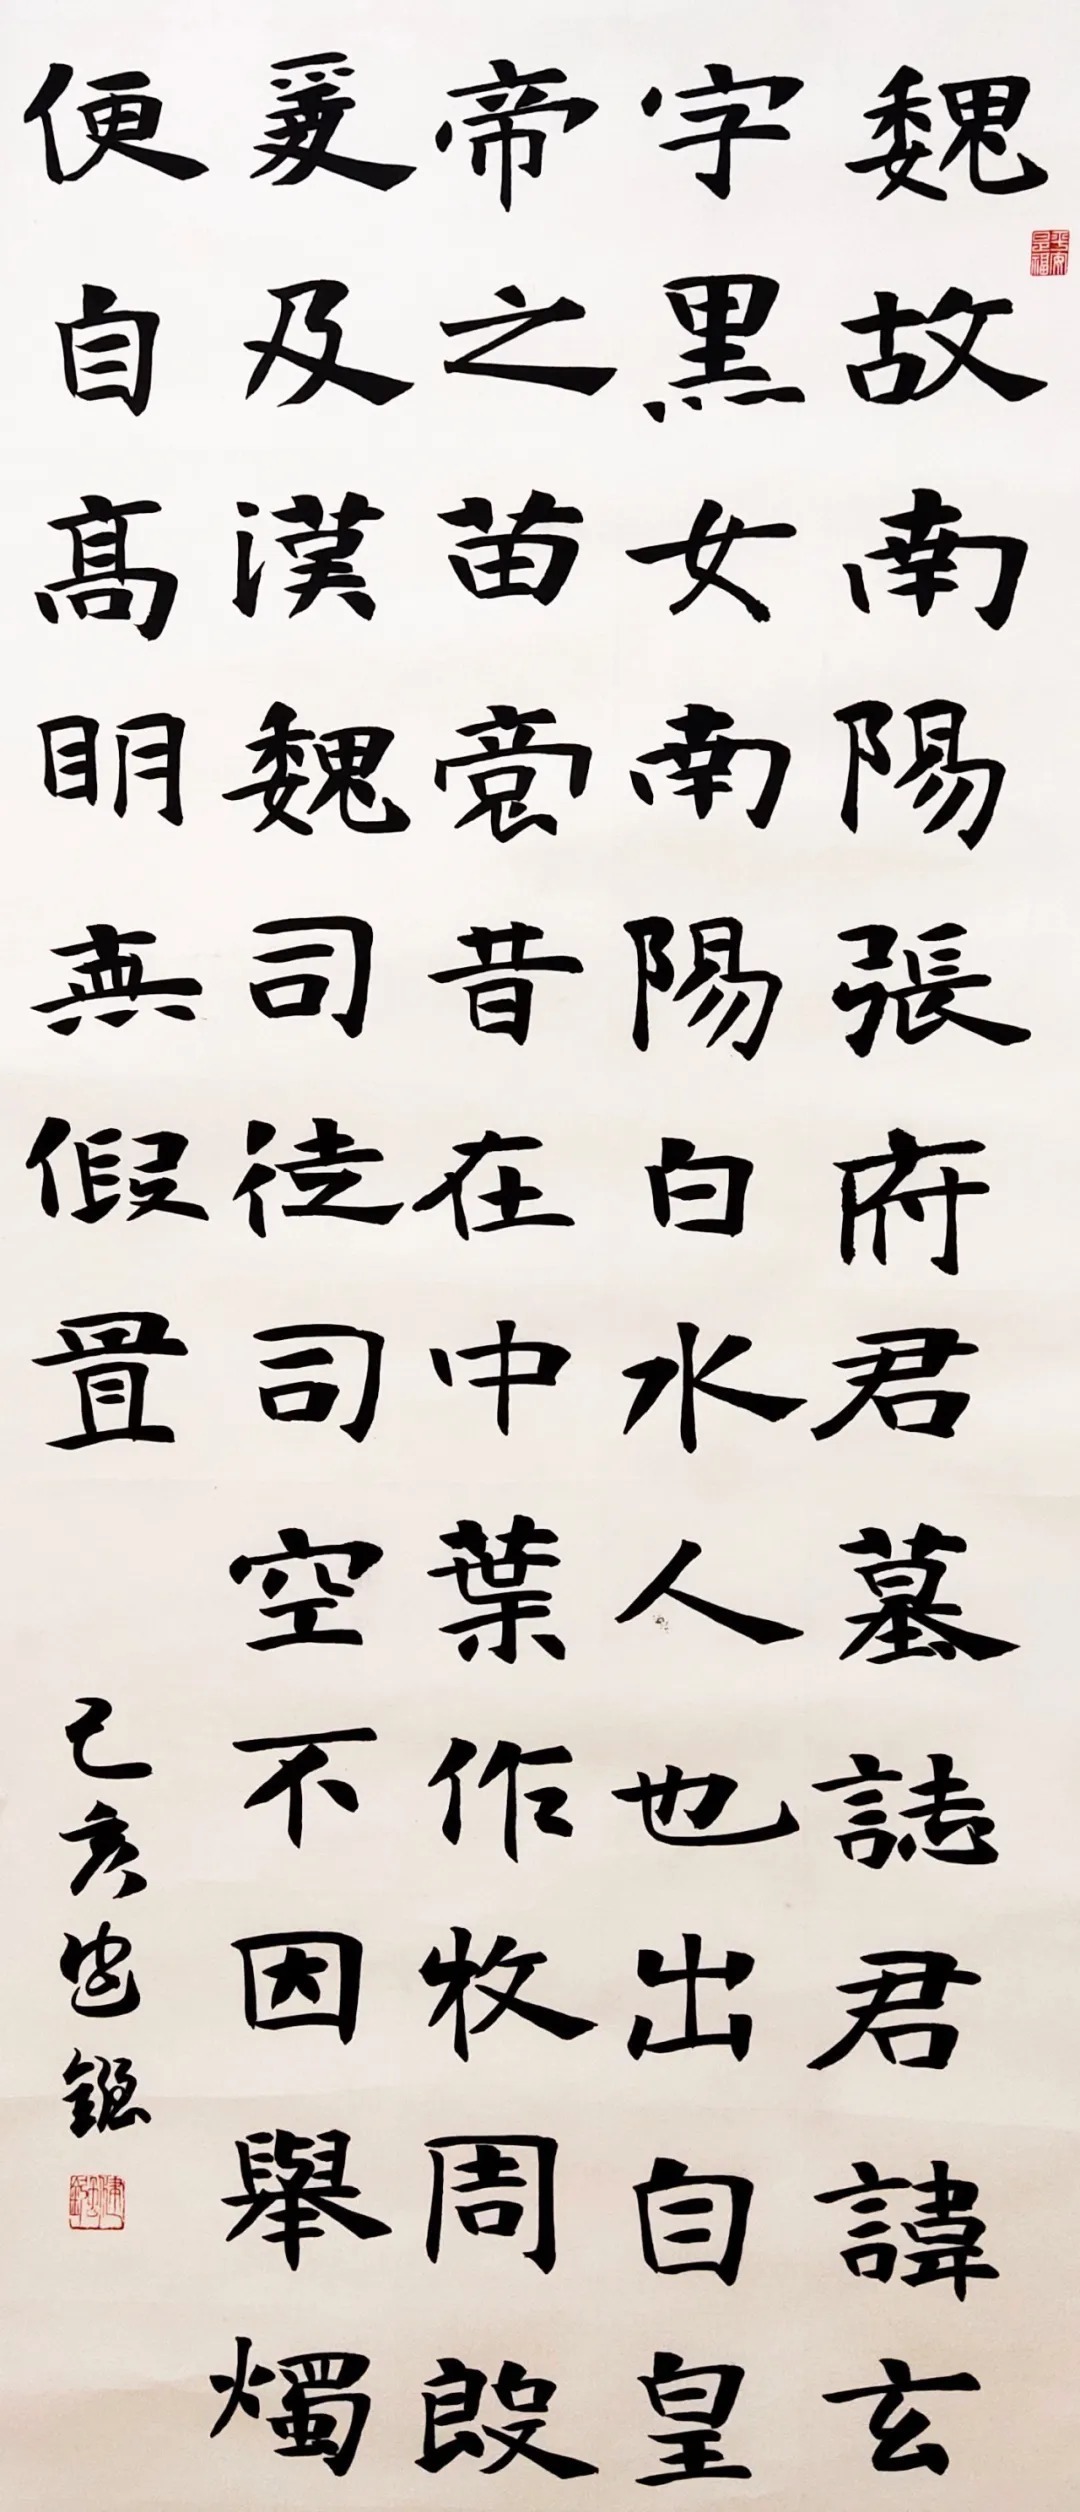 魏故南陽張府君墓誌君諱玄
字黑女南陽白水人也出自皇
帝之苗裔昔在中葉作牧周殷
爰及漢魏司徒司空不因舉燭
便自高明無假置
己亥
平安是福